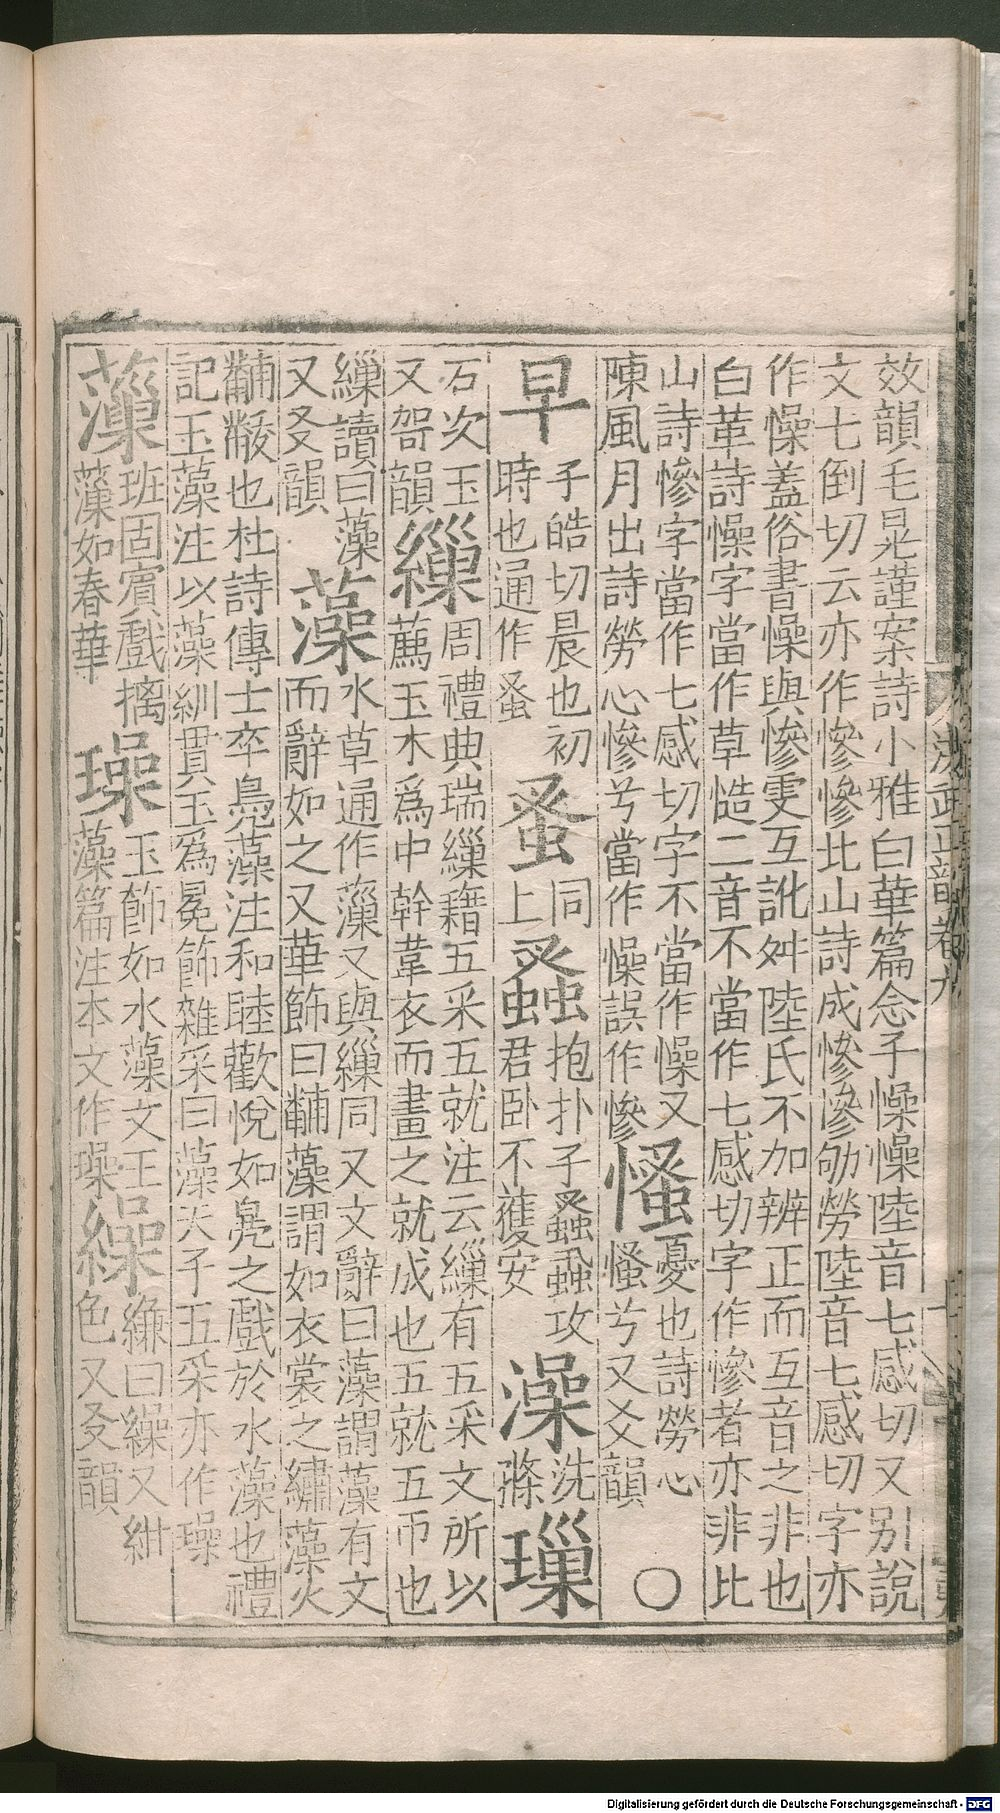 效韻毛晃謹案詩小雅白華篇念子懆懆陸音七感切又别說
文七倒切云亦作慘慘北山詩成慘慘劬勞陸音七感切字亦
作懆蓋俗書懆與慘雯互訛舛陸氏不加辨正而互音之非也
白華詩懆字當作草慥二音不當作七感切字作慘者亦非比
山詩慘字當作七感切字不當作懆又
陳風月出詩勞心慘兮當作懆誤作慘
慅
憂也詩勞心
慅兮又爻韻
○
早
子皓切晨也初
時也通作蚤
蚤
同
上
䖣
抱扑子䖣蝨攻
君卧不獲安
澡
洗
滌
璅
石次玉
又哿韻
繅
周禮典瑞繅籍五采五就注云繅有五采文所以
薦玉木爲中幹韋衣而畫之就成也五就五帀也
繅讀曰藻
又叉韻
藻
水草通作薻又與繅同又文辭曰藻謂藻有文
而辭如之又華飾曰黼藻謂如衣裳之繡藻火
黼黻也杜詩傳士卒鳧藻注和睦歡悅如鳧之戲於水藻也禮
記玉藻注以藻紃貫玉爲冕飾雜采曰藻天子五采亦作璪
薻
班固賓戲摛
薻如春華
璪
玉飾如水藻文王
藻篇注本文作璪
繰
縑曰繰又紺
色又叉韻
洪武正韻卷九